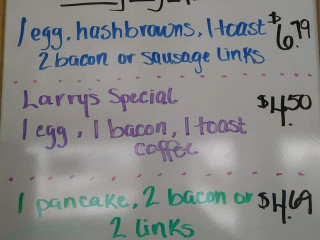 1 egg, hashbrowns, 1 toast $6.79
2 bacon or sausage links
Larry's Special $4.50
1 egg, 1 bacon, 1 toast
coffee
1 pancake, 2 bacon or $4.69
2 links